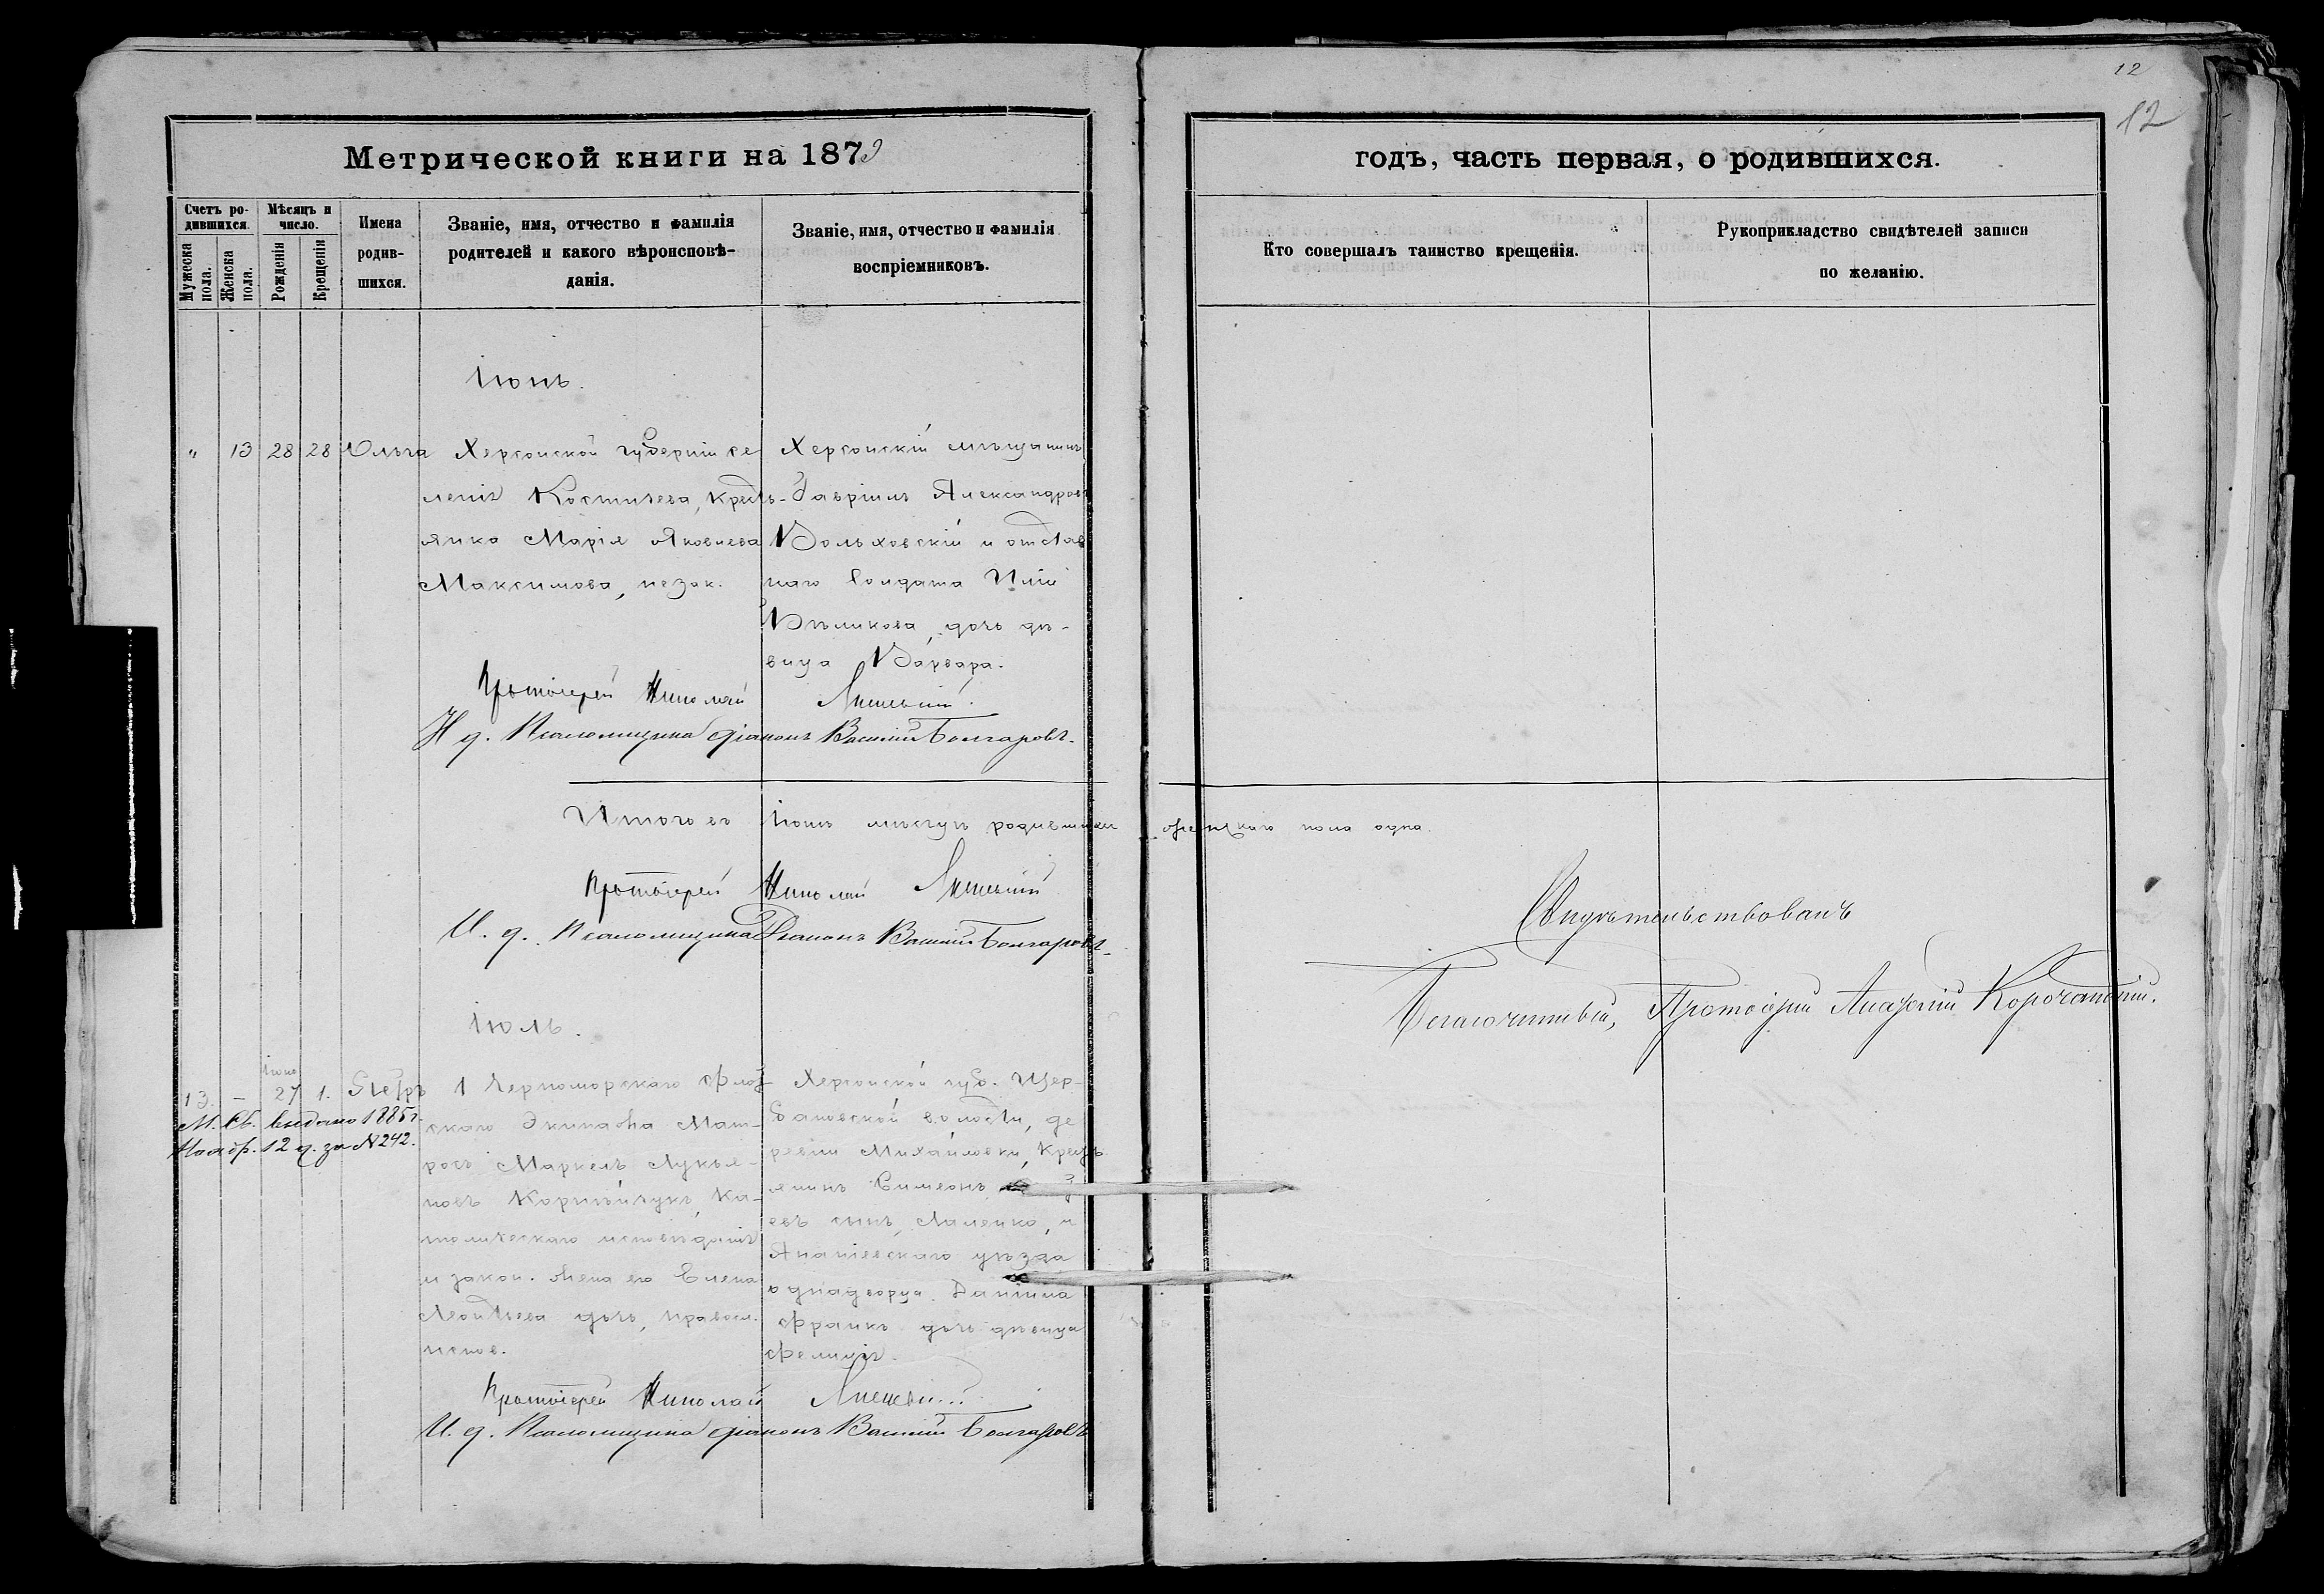 12
12
Метрической книги на 1879
годъ, часть первая, о родившихся.
Счетъ ро-
дившихся.
Мужеска пола.
Женска пола.
Мѣсяцъ и
число.
Рожденія
Крещенія
Имена
родив-
шихся.
Званіе, имя, отчество и фамилія
родителей и какого вѣроисповѣ-
данія.
Званіе, имя, отчество и фамилія
воспріемниковъ.
Кто совершалъ таинство крещенія.
Рукоприкладство свидѣтелей записи
по желанію.
Іюнь.
" 13 28 28 Ольга
Херсонской губерніи се
ленія Костычева, кресть-
янка Марія Яковлева
Максимова, незак.
Херсонскій мѣщанинъ
Гавріилъ Александровъ
Вольховскій и отстав
наго солдата Иліи
Бѣликова, дочь дѣ-
вица Варвара.
Протоіерей Николай
И д. Псаломщика діаконъ Василій Болгаровъ.
Итого въ Іюнѣ мѣсяцѣ родившихся женскаго пола одна.
Протоіерей Николай
И. д. Псаломщика Діаконъ Василій Болгаровъ
Свидѣтельствовалъ
Благочинный, Протоіерей Корочанскій.
Іюль.
Іюня
13. – 27 1. Петръ
М. Св. выдано 1885 г.
Ноябр. 12 д. за № 242.
1 Черноморскаго флот-
скаго Экипажа Мат-
росъ Маркелъ Лукья-
новъ Корнѣйчукъ, ка-
толическаго исповѣданія
и закон. жена его Елена
Леонтьева дочь, правосл.
испов.
Херсонской губ. Щер-
бановской волости, де
ревни Михайловки, крест
янинъ Симеонъ
евъ сынъ, Маленко, и
Ананіевскаго уѣзда
однадворца Даніила
Франкъ дочь дѣвица
Фелиція.
Протоіерей Николай
И. д. Псаломщика діаконъ Василій Болгаровъ